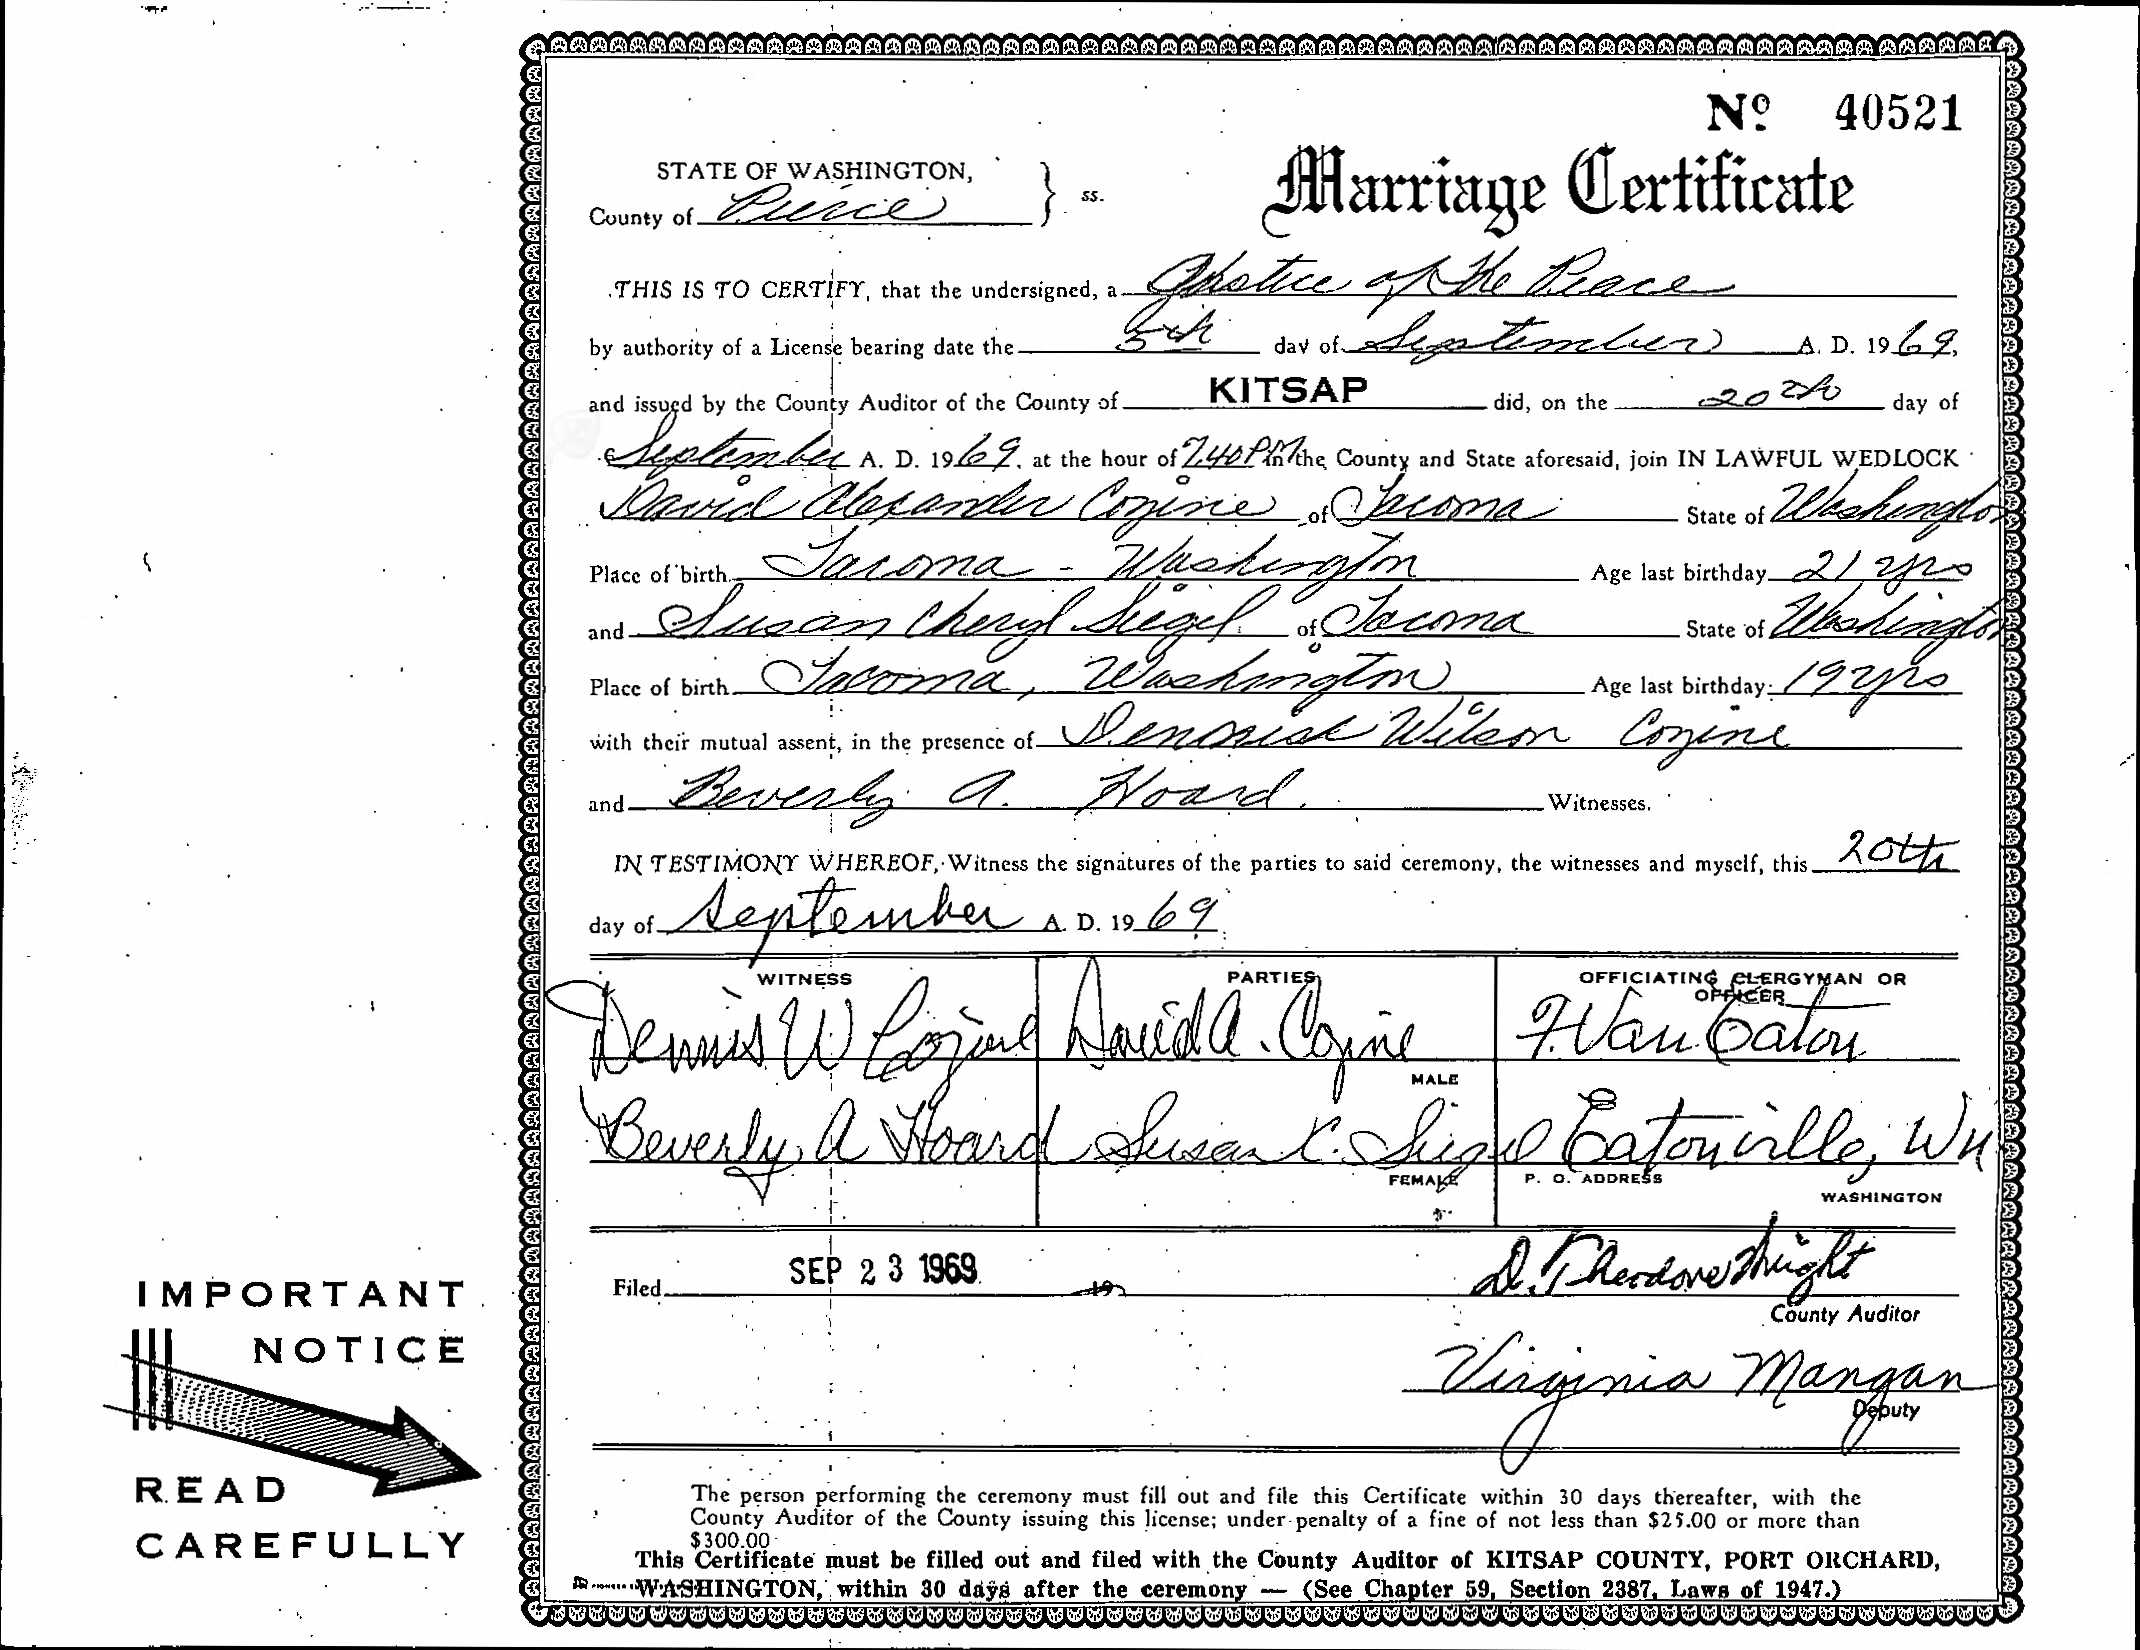 Nº 40521
STATE OF WASHINGTON,
County of Pierce } ss.
Marriage Certificate
THIS IS TO CERTIFY, that the undersigned, a Justice of the Peace
by authority of a License bearing date the 5th day of September A. D. 1969,
and issued by the County Auditor of the County of KITSAP did, on the 20th day of
September A. D. 1969, at the hour of 7:40 PM in the County and State aforesaid, join IN LAWFUL WEDLOCK
David Alexander Cozine of Tacoma State of Washington
Place of birth Tacoma - Washington Age last birthday 21 yrs
and Susan Cheryl Siegel of Tacoma State of Washington
Place of birth Tacoma, Washington Age last birthday 19 yrs
with their mutual assent, in the presence of Wilson Cozine
and Beverly A. Hoard Witnesses.
IN TESTIMONY WHEREOF, Witness the signatures of the parties to said ceremony, the witnesses and myself, this 20th
day of September A. D. 1969.
WITNESS PARTIES OFFICIATING CLERGYMAN OR OFFICER
Dennis W Cozine David A. Cozine F. Van Eaton
MALE
Beverly A Hoard Susan C. Siegel Eatonville, Wn
FEMALE P. O. ADDRESS
WASHINGTON
Filed SEP 23 1969 19
D. Theodore Wright
County Auditor
Virginia Mangan
Deputy
IMPORTANT
NOTICE
READ
CAREFULLY
The person performing the ceremony must fill out and file this Certificate within 30 days thereafter, with the
County Auditor of the County issuing this license; under penalty of a fine of not less than $25.00 or more than
$300.00
This Certificate must be filled out and filed with the County Auditor of KITSAP COUNTY, PORT ORCHARD,
WASHINGTON, within 30 days after the ceremony — (See Chapter 59, Section 2387, Laws of 1947.)